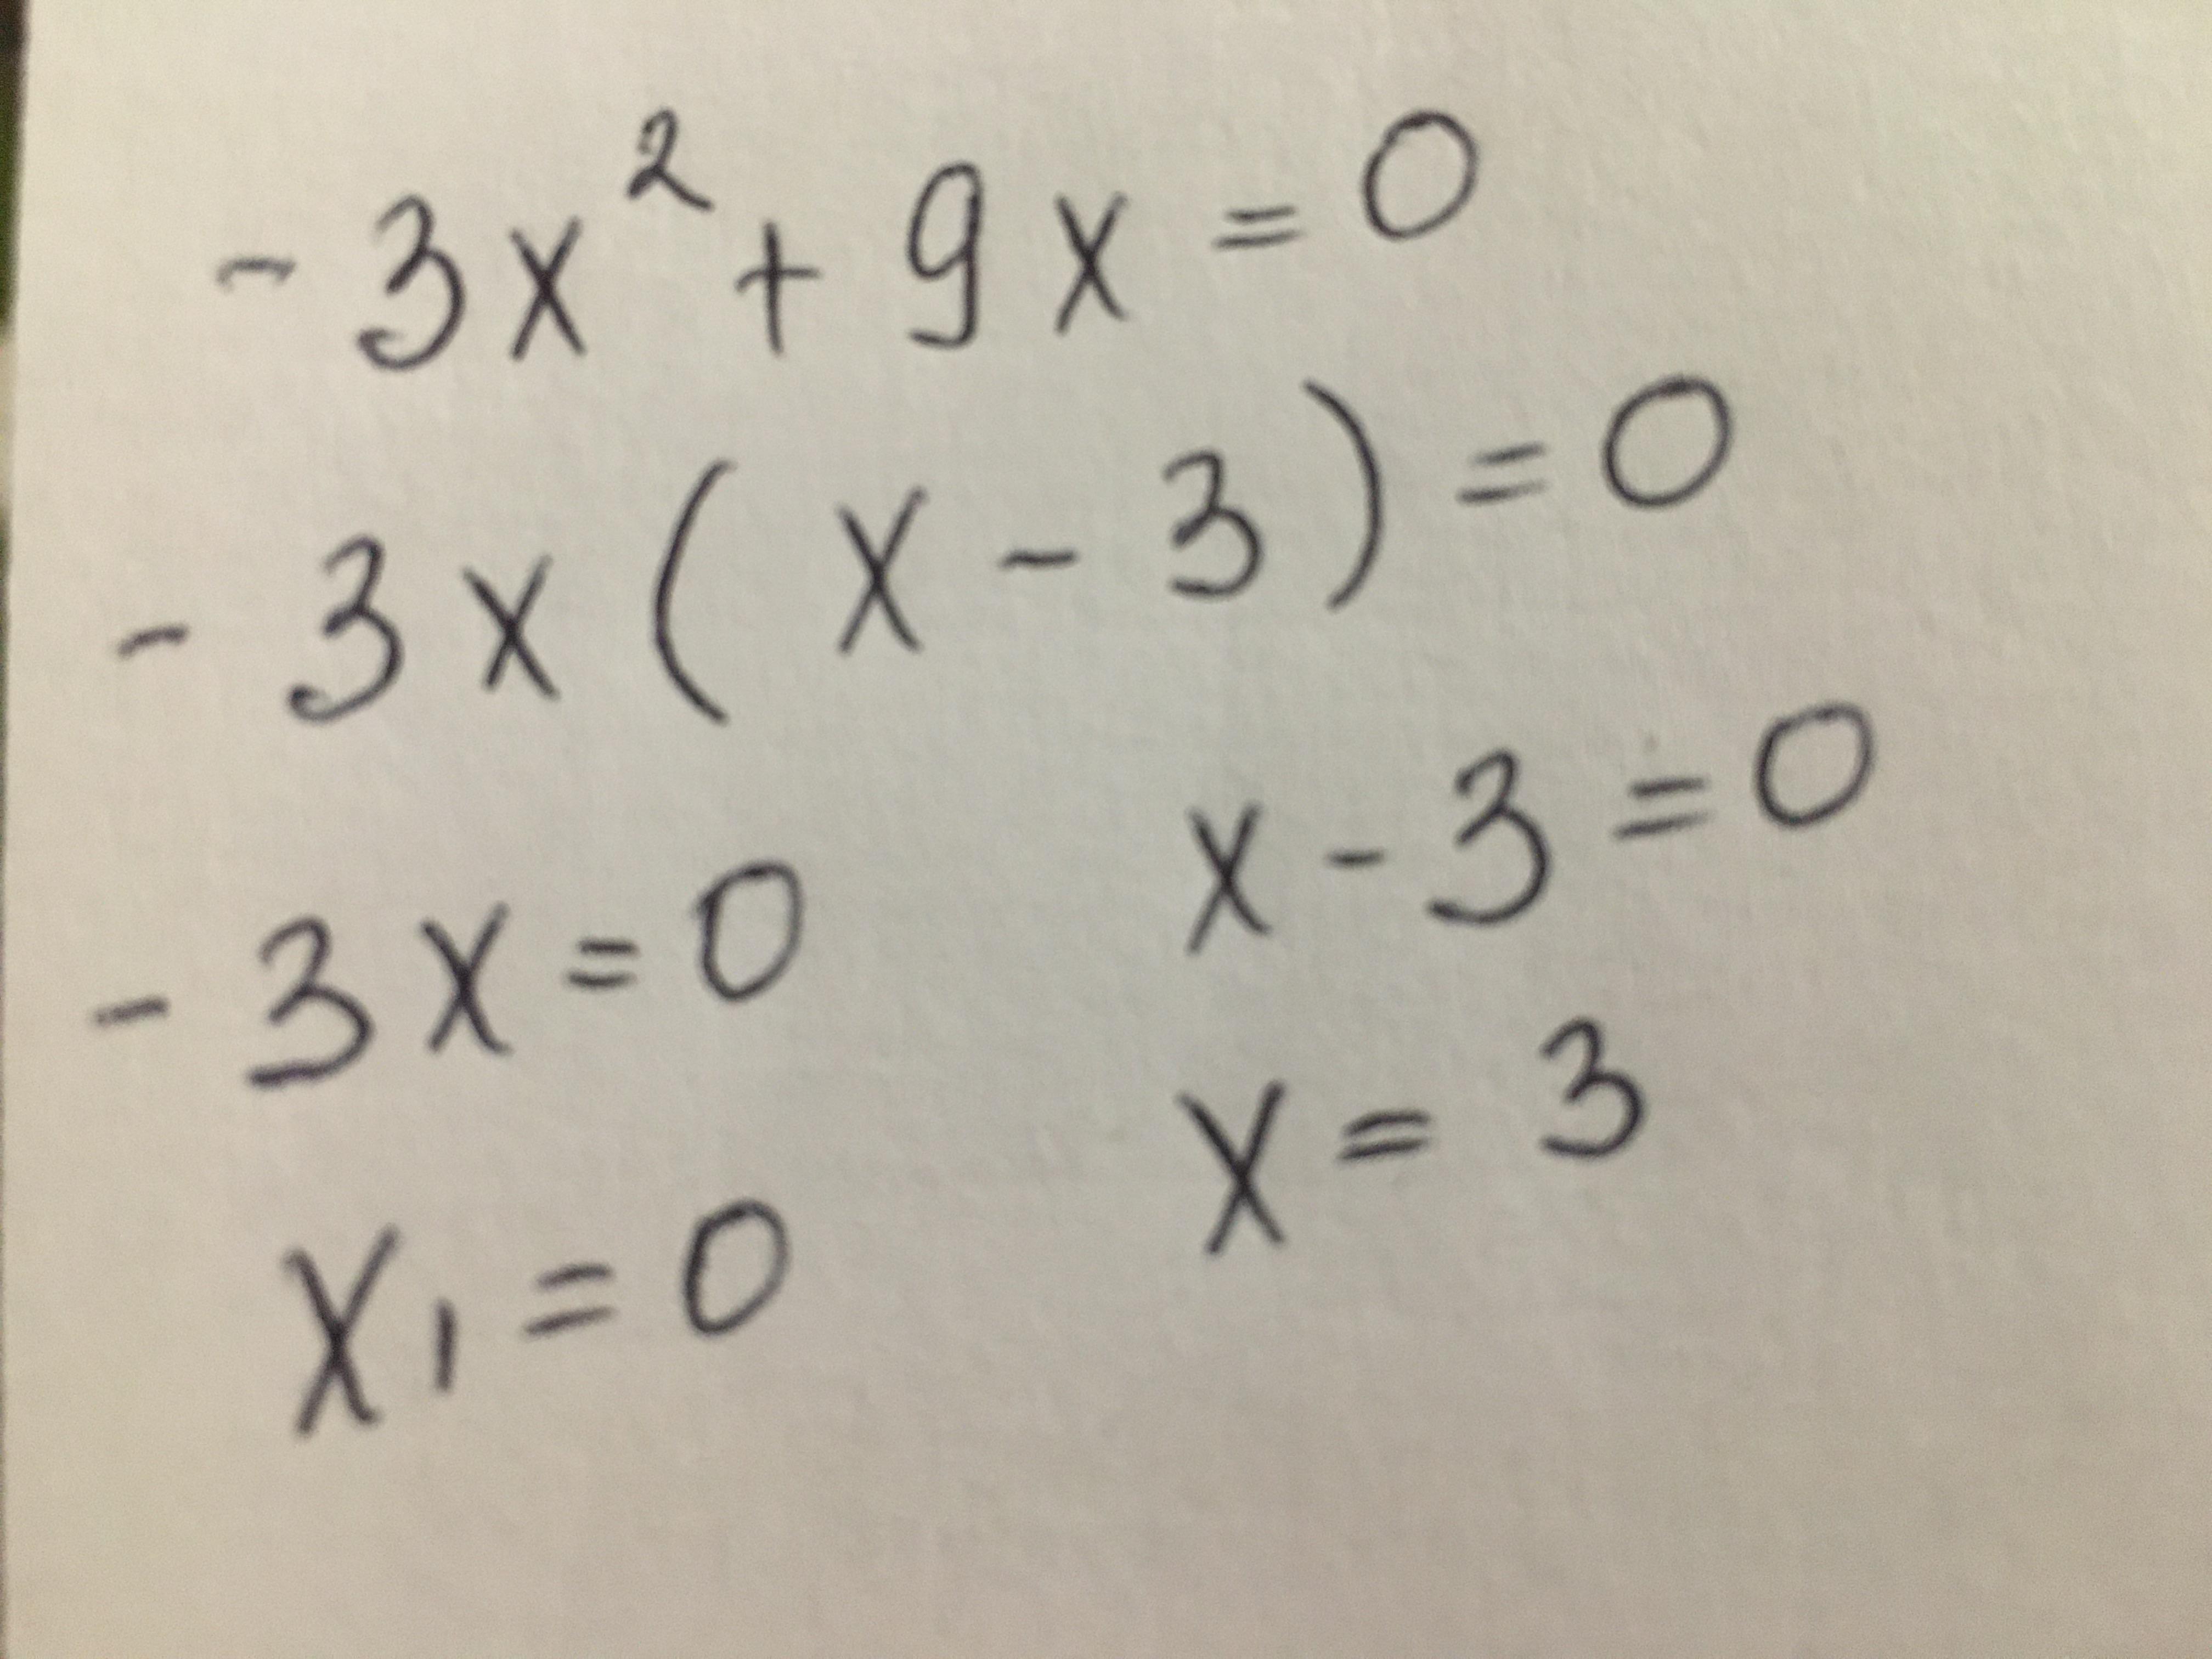 -3x² + 9x = 0
-3x (x - 3) = 0
-3x = 0 x - 3 = 0
x₁ = 0 x = 3